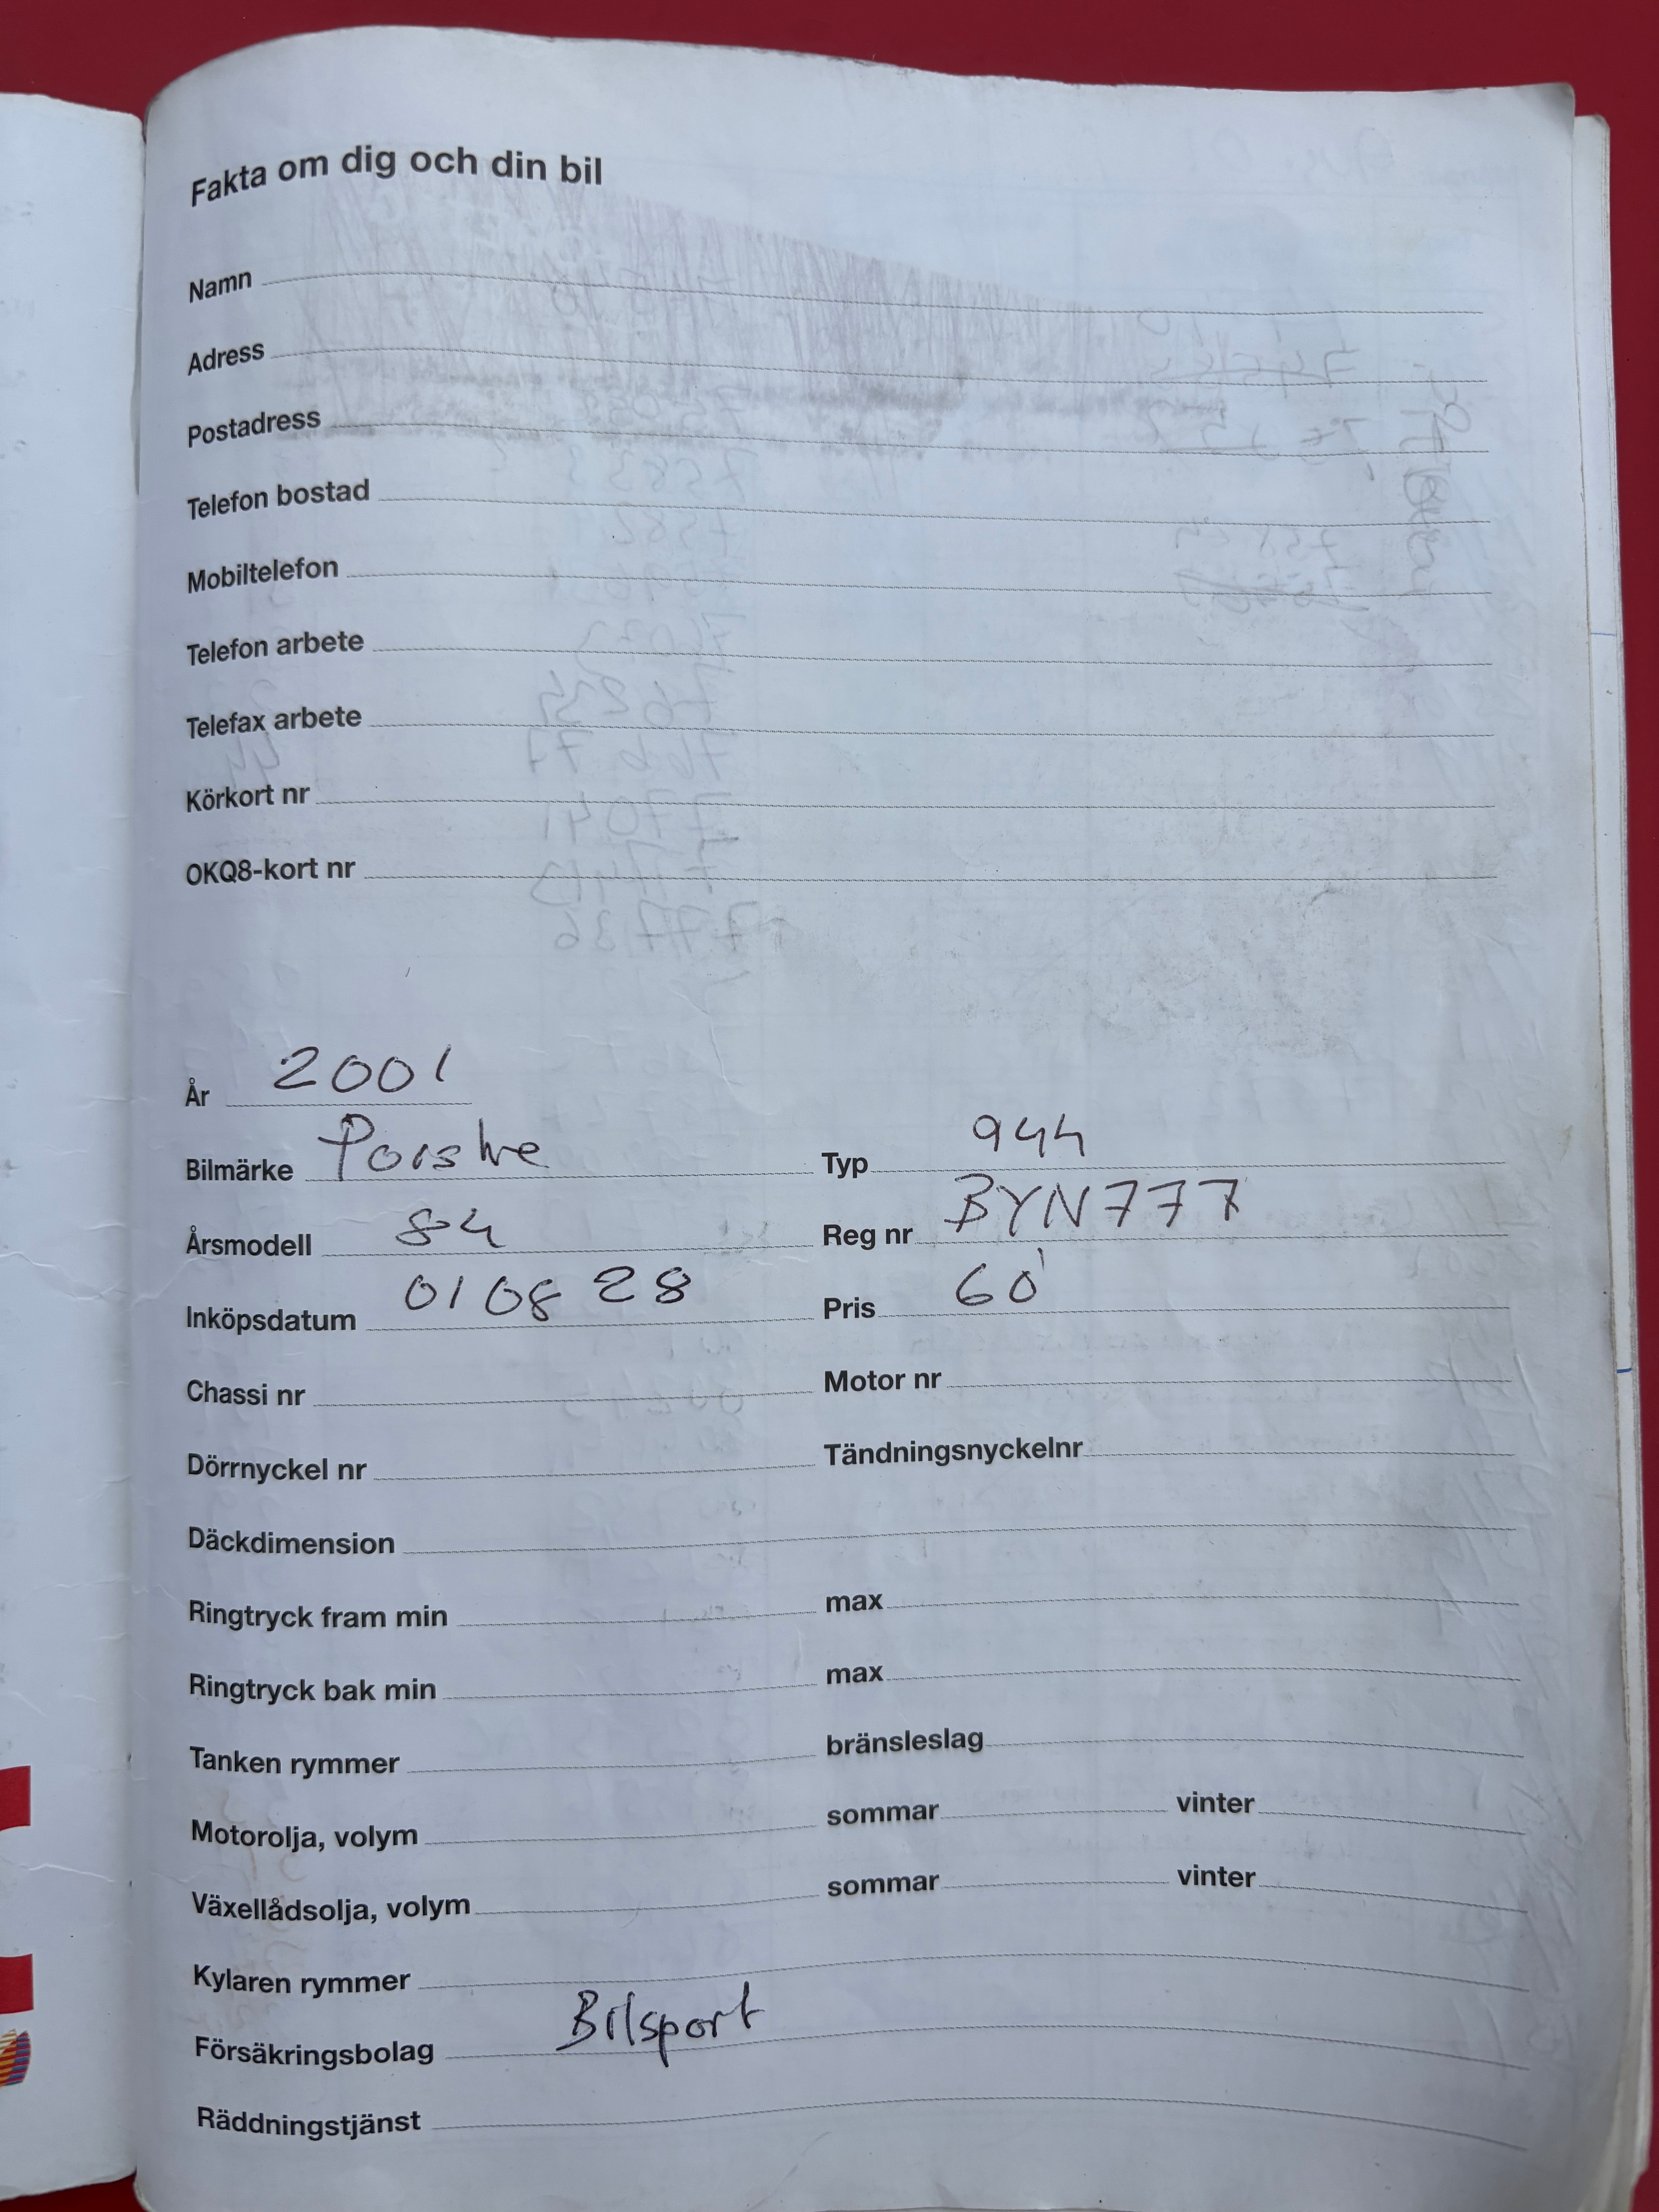 Fakta om dig och din bil
Namn
Adress
Postadress
Telefon bostad
Mobiltelefon
Telefon arbete
Telefax arbete
Körkort nr
OKQ8-kort nr
År 2001
Bilmärke Porshe Typ 944
Årsmodell 84 Reg nr BYN777
Inköpsdatum 010828 Pris 60'
Chassi nr Motor nr
Dörrnyckel nr Tändningsnyckelnr
Däckdimension
Ringtryck fram min max
Ringtryck bak min max
Tanken rymmer bränsleslag
Motorolja, volym sommar vinter
Växellådsolja, volym sommar vinter
Kylaren rymmer
Försäkringsbolag Bilsport
Räddningstjänst